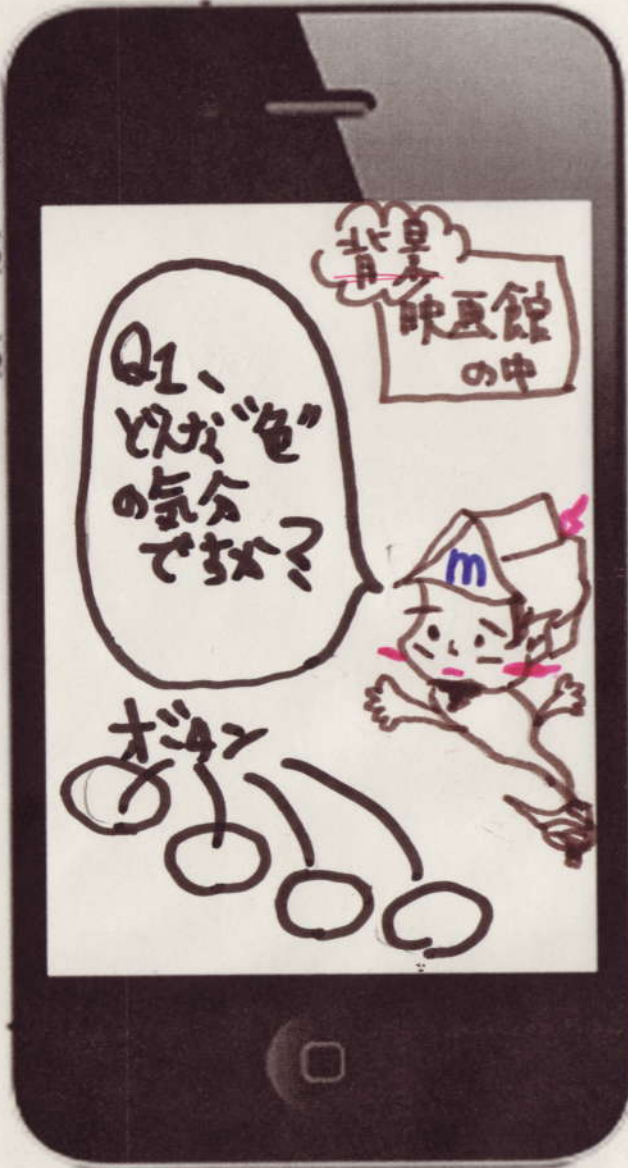 背景
映画館
の中
Q1、
どんな“色”
の気分
でちか？
m
ボタン